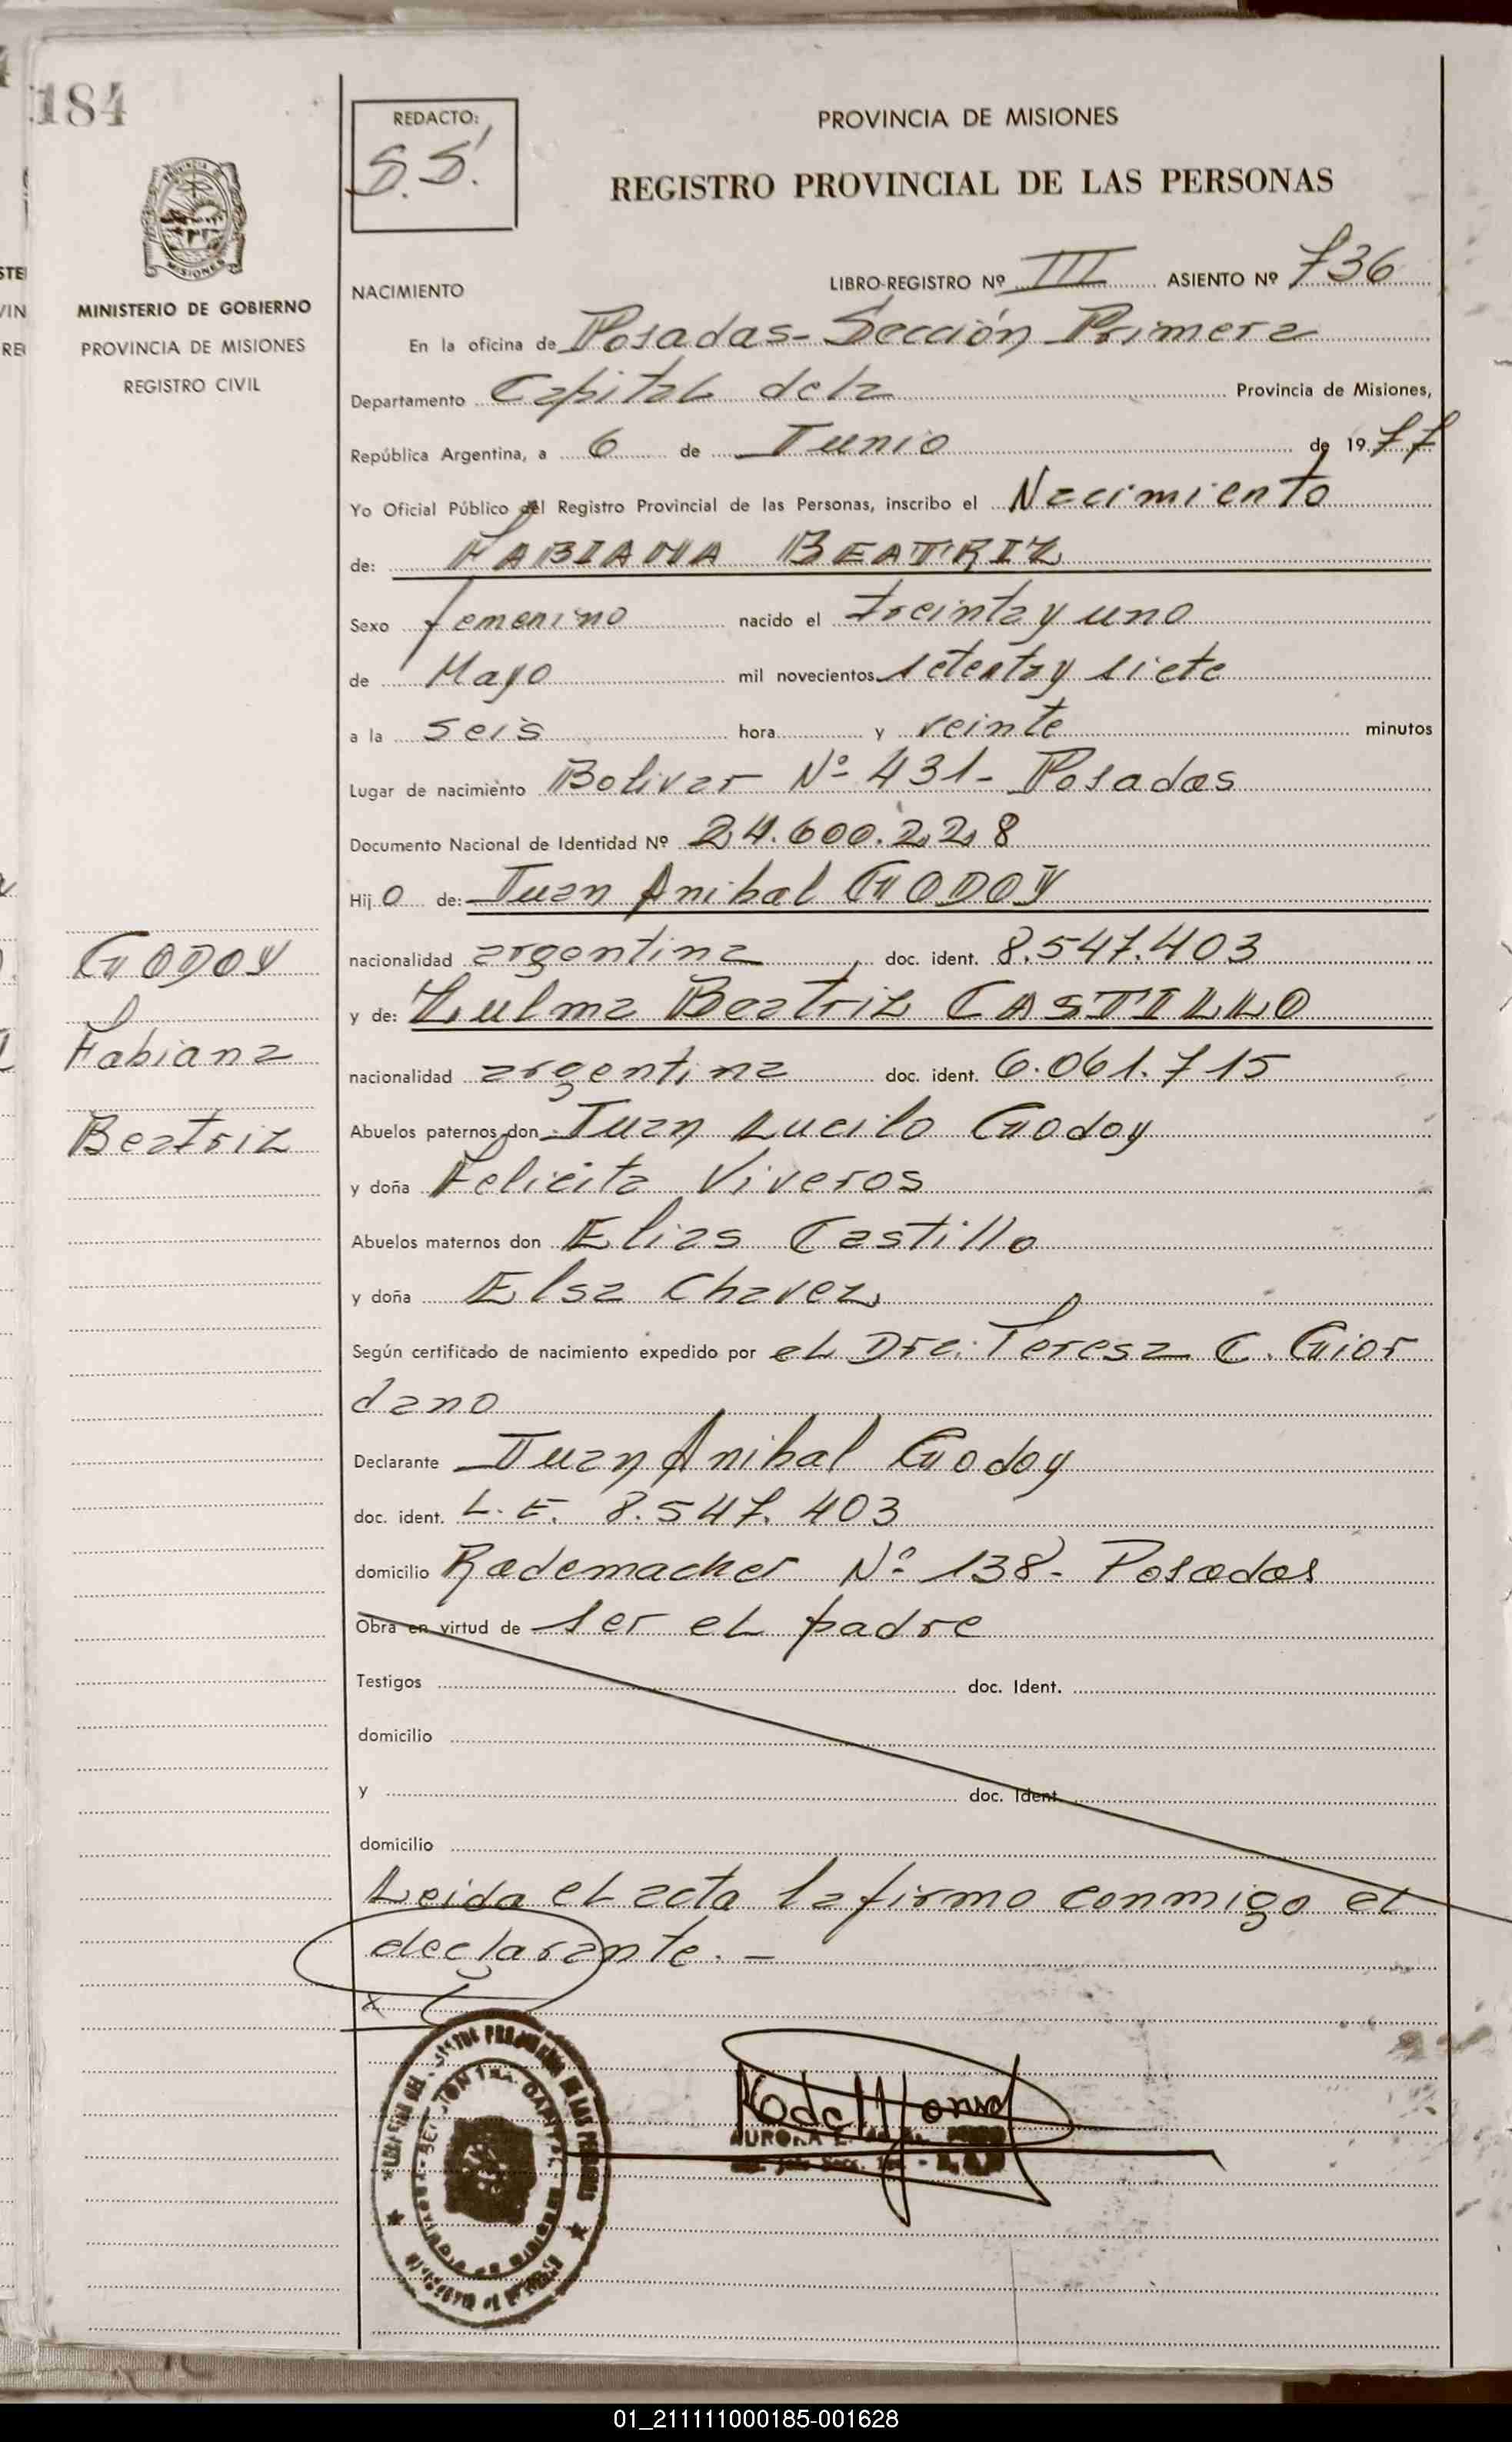 184
REDACTO:
S.S.
PROVINCIA DE MISIONES
REGISTRO PROVINCIAL DE LAS PERSONAS
MINISTERIO DE GOBIERNO
PROVINCIA DE MISIONES
REGISTRO CIVIL
NACIMIENTO
LIBRO-REGISTRO Nº III ASIENTO Nº 736
En la oficina de Posadas - Sección Primera
Departamento Capital de la Provincia de Misiones,
República Argentina, a 6 de Junio de 1977
Yo Oficial Público del Registro Provincial de las Personas, inscribo el Nacimiento
de: FABIANA BEATRIZ
Sexo femenino nacido el treinta y uno
de Mayo mil novecientos setenta y siete
a la seis hora y veinte minutos
Lugar de nacimiento Bolivar Nº 431 - Posadas
Documento Nacional de Identidad Nº 24.600.228
Hijo de: Juan Anibal GODOY
nacionalidad argentina doc. ident. 8.547.403
y de: Zulma Beatriz CASTILLO
nacionalidad argentina doc. ident. 6.061.715
Abuelos paternos don Juan Lucilo Godoy
y doña Felicita Viveros
Abuelos maternos don Elias Castillo
y doña Elsa Chavez
Según certificado de nacimiento expedido por el Dra: Teresa C. Gior
dano
Declarante Juan Anibal Godoy
doc. ident. L.E. 8.547.403
domicilio Rademacher Nº 138 - Posadas
Obra en virtud de ser el padre
Testigos doc. Ident.
domicilio
y doc. Ident.
domicilio
Leida el acta la firmo conmigo el
declarante. -
x
GODOY
Fabiana
Beatriz
AURORA
01_211111000185-001628